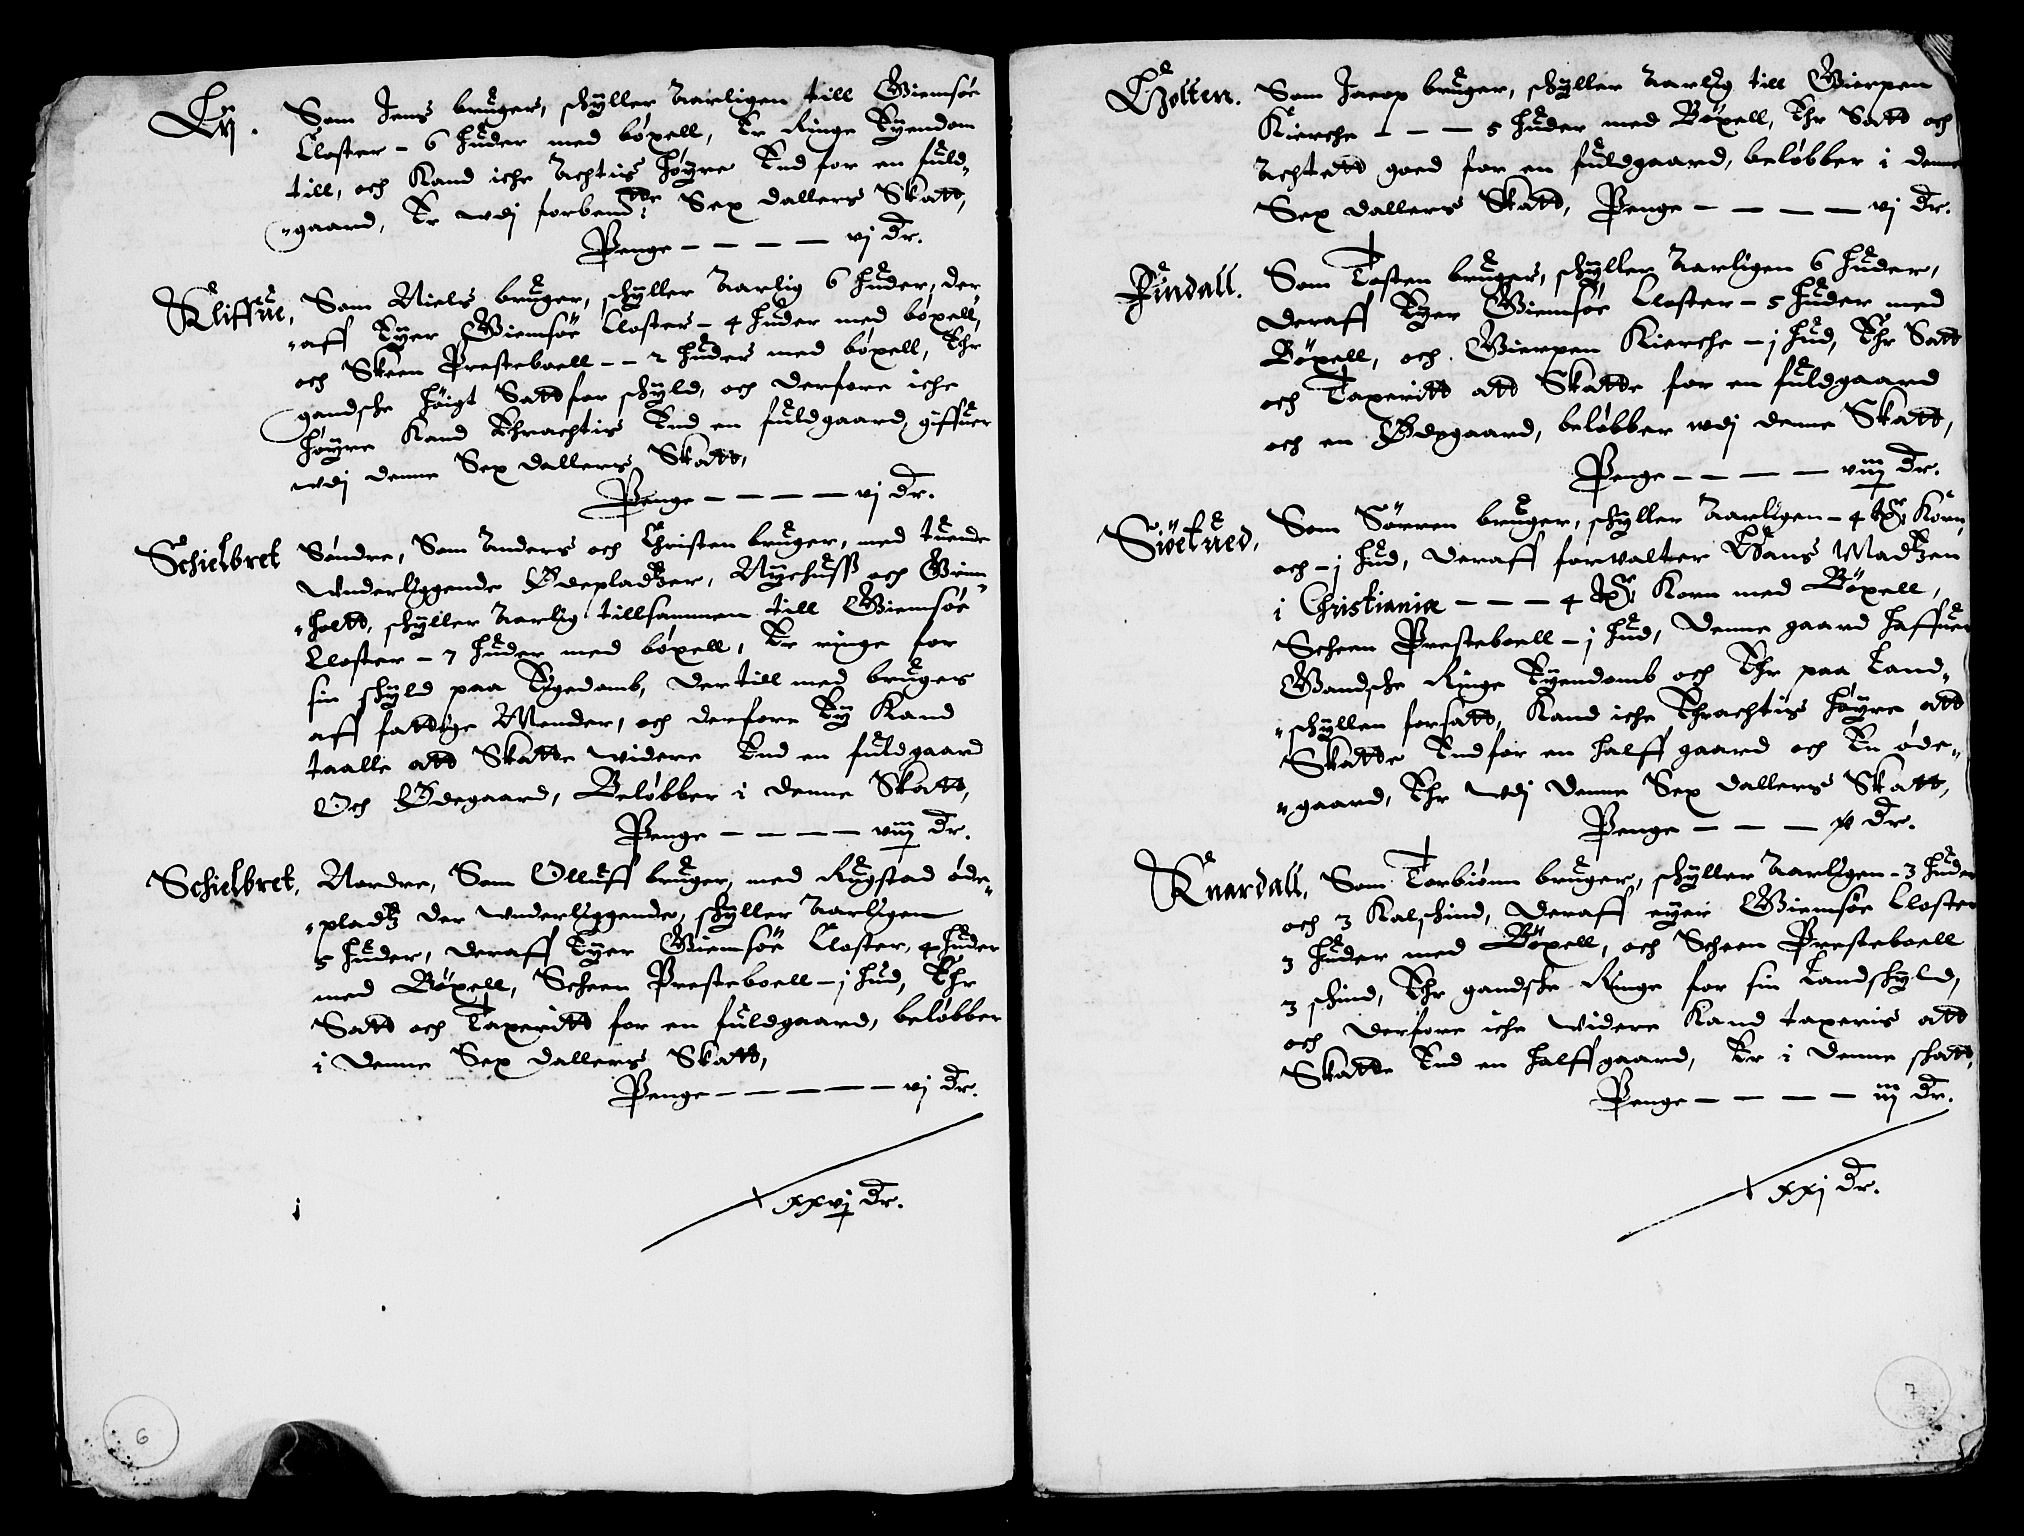 Lij. Som Jens bruger, schÿller Aarligen till Giemsöe
Closter - 6 huder med böxell, Er Ringe Eÿendom
till, och Kand iche Achtis höyre End for en fuld„
„gaard, Er wdj forbendte Sex dallers Skatt,
Penge - - - - vj Dr.
Kliffue, Som Niels bruger, schÿller Aarlig 6 huder, der
„aff Eÿer Giemsöe Closter - 4 huder med böxell,
och Skeen Presteboell - - 2 huder med böxell, Ehr
gandsche höigt Satt for schÿld, och derfore iche
höyre Kand Ehrachtis End en fuldgaard, giffuer
wdj denne Sex dallers Skatt,
Penge - - - - vj Dr.
Schielbret Söndre, Som Anders och Christen bruger, med tuende
wnderliggende Ödepladtzer, Nÿehuss och Grim„
„holtt, schÿller Aarlig tillsammen till Giemsöe
Closter - 7 huder med böxell, Er ringe for
sin schÿld paa Eigedomb, der till med bruges
aff fattige Mender, och derfore Eÿ Kand
taalle att Skatte widere End en fuldgaard
Och Ödegaard, Belöbber i denne Skatt,
Penge - - - - viij Dr.
Schielbret, Nordre, Som Olluff bruger, med Rugstad öde„
„pladtz der wnderliggende, schÿller Aarligen
5 huder, deraff Eÿer Giemsöe Closter, 4 huder
med Böxell, Scheen Presteboell - j hud, Ehr
Satt och Taxeritt for en fuldgaard, belöbber
i denne Sex dallers Skatt,
Penge - - - - - vj Dr.
xxvj Dr.
6
Holten. Som Jacop bruger, schÿller Aarlig till Gierpen
Kierche - - - 5 huder med Böxell, Ehr Satt och
Achtett goed for en fuldgaard, belöbber i denne
Sex dallers Skatt, Penge - - - - vj Dr.
Findall. Som Tosten bruger, schÿller Aarligen 6 huder,
deraff Eÿer Giemsöe Closter - 5 huder med
Böxell, och Gierpen Kierche - j hud, Ehr Satt
och Taxeritt att Skatte for en fuldgaard
och en Ödegaard, belöbber wdj denne Skatt,
Penge - - - - viij Dr.
Siöetued, Som Sörren bruger, schÿller Aarligen - 4 Korn,
och - j hud, deraff forwalter Hans Madtzen
i Christiania - - - 4 Korn med Böxell,
Scheen Presteboell - j hud, Denne gaard haffuer
Gandsche Ringe Eÿendomb och Ehr paa Land„
„schÿllen forsatt, Kand iche Ehrachtis höyre att
Skatte End for en halff gaard och En öde„
„gaard, Ehr wdj denne Sex dallers Skatt,
Penge - - - Dr.
Knardall, Som Torbiönn bruger, schÿller Aarligen - 3 huder
och 3 Kalfschind, deraff eÿer Giemsöe Closter
3 huder med Böxell, och Scheen Presteboell
3 schind, Ehr gandsche Ringe for sin Landschÿld,
och derfore iche widere Kand taxeris att
Skatte End en halffgaard, Er i denne schatt,
Penge - - - - iij Dr.
xxj Dr.
7